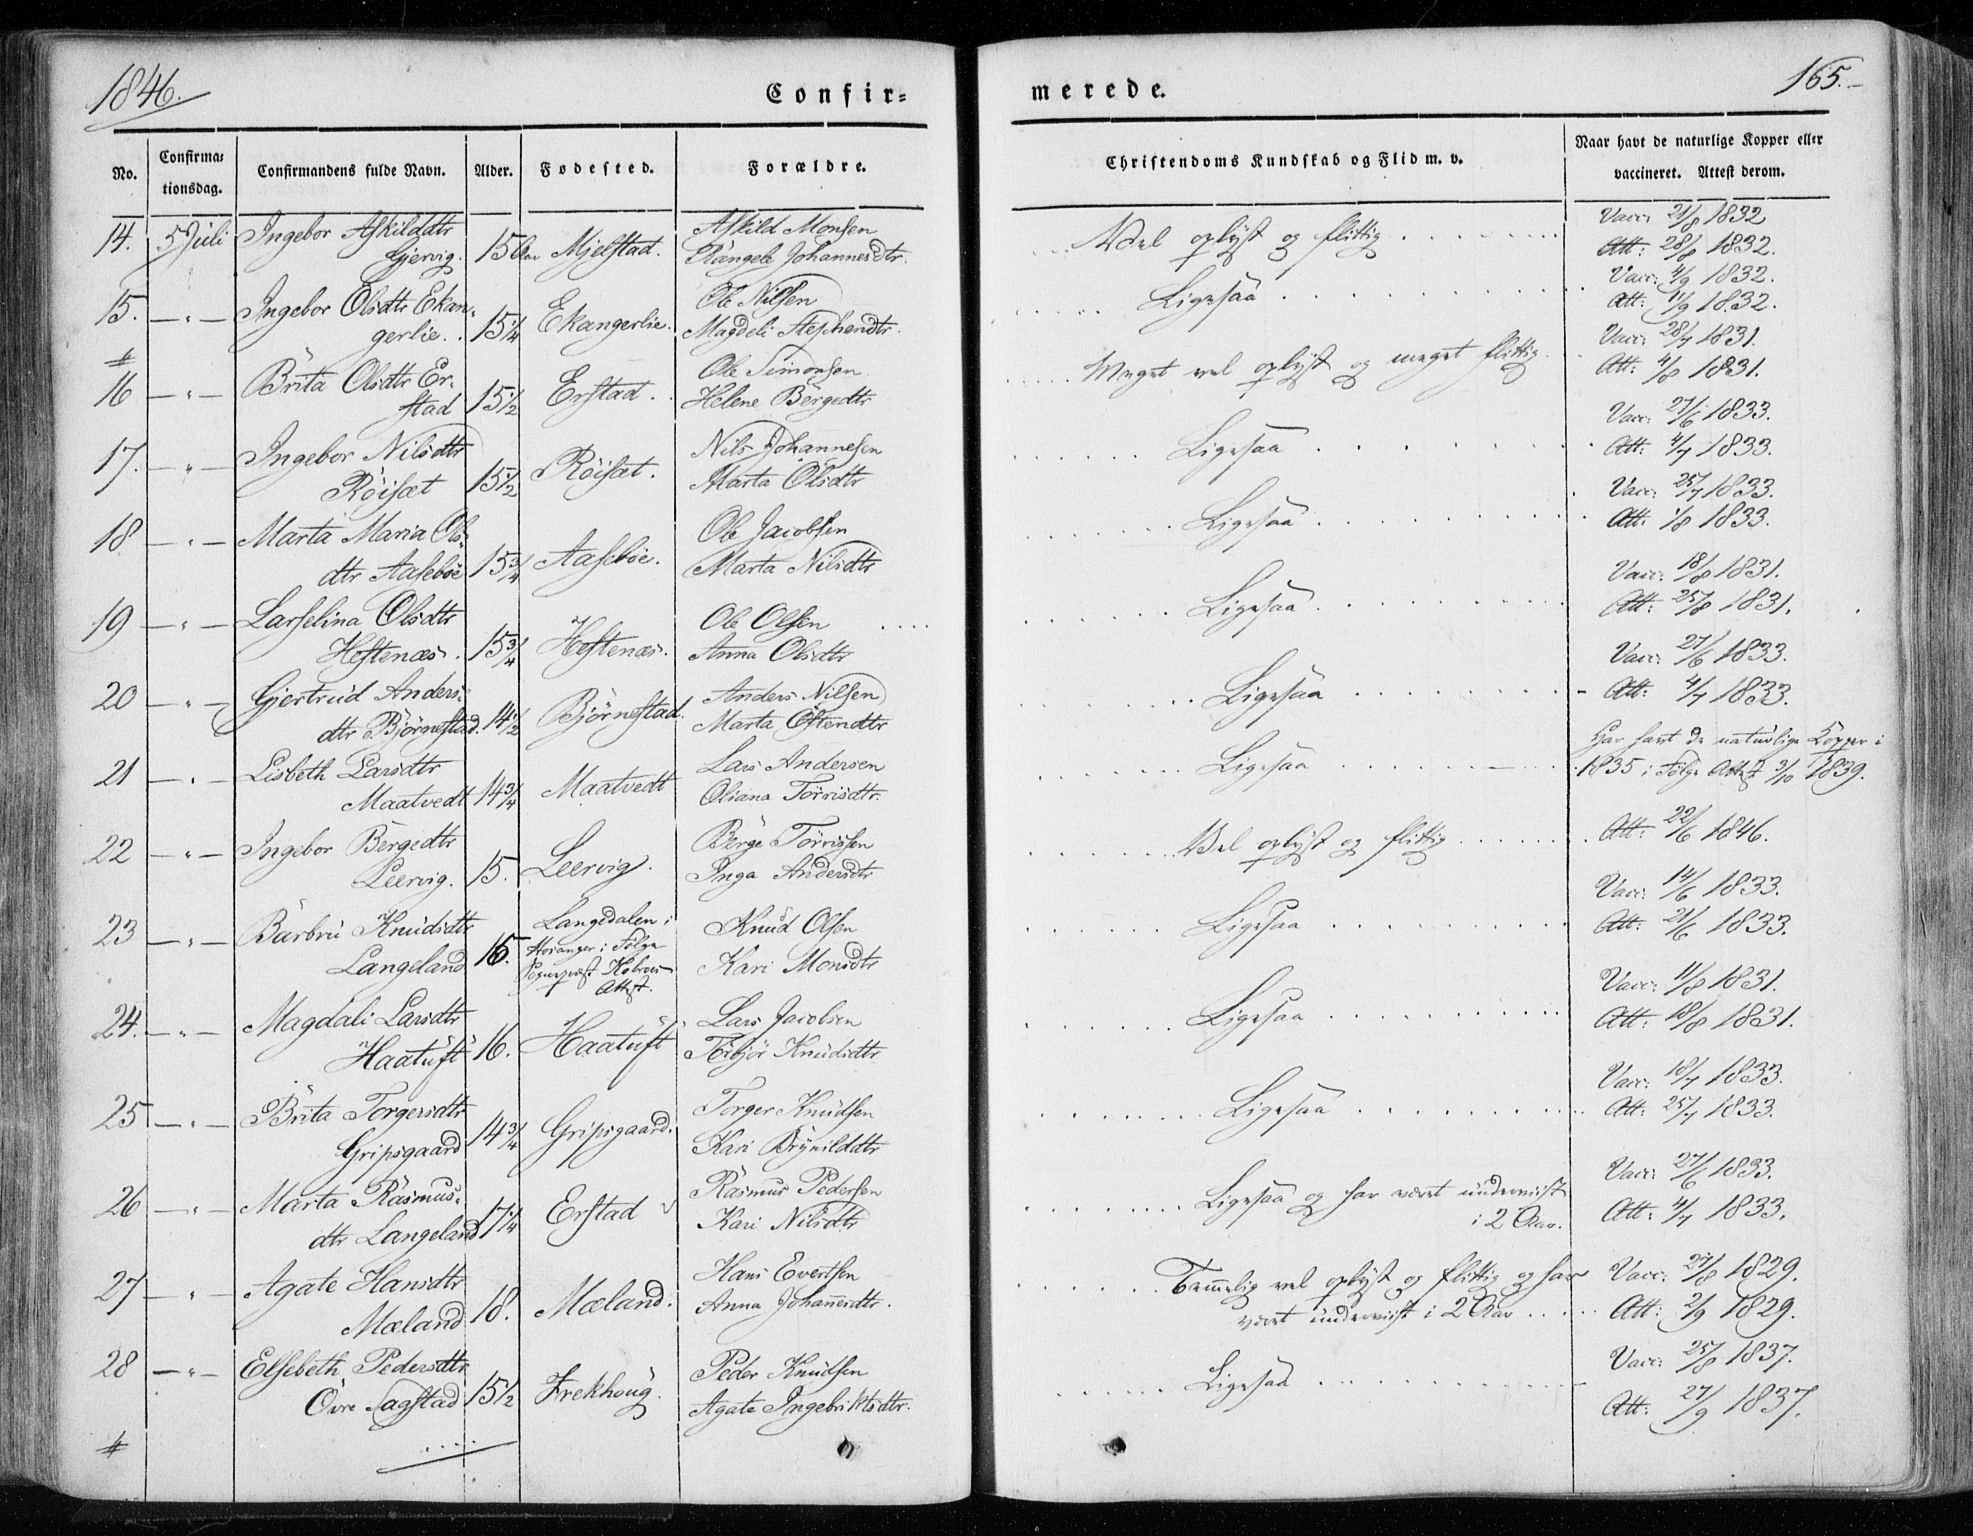 1846.
Confir=
merede.
165.
No.
Confirma=
tionsdag.
Confirmandens fulde Navn.
Alder.
Fødested.
Forældre.
Christendoms Kundskab og Flid m. v.
Naar havt de naturlige Kopper eller
vaccineret. Attest derom.
14. 5 Juli Ingebor Askilddtr Askild Monsen Vacc: 21/8 1832
Gjervig. 15 Aar Mjelstad. Rangele Johannesdtr. Vel oplyst og flittig Att: 28/8 1832.
15. — " — Ingebor Olsdtr Ekan= Ole Nilsen Vacc: 4/9 1832.
gerlie. 15 1/4 Ekangerlie. Magdeli Stephendtr. Ligesaa Att: 11/9 1832.
#
16 — " — Brita Olsdtr Er= Ole Simonsen Vacc: 28/7 1831.
stad 15 1/2 Erstad. Helene Børgedtr Meget vel oplyst og meget flittig. Att: 4/8 1831.
17. — " — Ingebor Nilsdtr Nils Johannesen Vacc: 27/6 1833.
Röiset 15 1/2 Röiset. Marta Olsdtr Ligesaa Att: 4/7 1833.
18 — " — Marta Maria Ols= Ole Jacobsen Vacc: 25/7 1833.
dtr Aasebøe 15 3/4 Aasebøe. Marta Nilsdtr Ligesaa Att: 1/8 1833.
19 — " — Larselina Olsdtr Ole Olsen Vacc: 18/8 1831.
Hestenæs. 15 3/4 Hestenæs. Anna Olsdtr Ligesaa Att: 25/8 1831.
20 — " — Gjertrud Anders= Anders Nilsen Vacc: 27/6 1833.
dtr Bjørnestad. 14 1/2 Bjørnestad. Marta Østendtr Ligesaa Att: 4/7 1833.
21 — " — Lisbeth Larsdtr Lars Andersen Har havt de naturlige Kopper i
Maatvedt 14 3/4 Maatvedt Oliana Törrisdtr. Ligesaa 1835 i Følge Attest 3/10 1839.
22 — " — Ingebor Børgedtr Børge Törrissen
Leervig. 15. Leervig. Inga Andersdtr Vel oplyst og flittig Att: 22/6 1846.
23 — " — Barbru Knudsdtr Langedalen i Knud Olsen Vacc: 14/6 1833.
Langeland 16. Hosanger i Følge Kari Monsdtr Ligesaa Att: 21/6 1833.
Sognepræst
Attest.
24. — " — Magdali Larsdtr Lars Jacobsen Vacc: 11/8 1831.
Haatuft 16. Haatuft Torbjör Knudsdtr Ligesaa Att: 18/8 1831.
25 — " — Brita Torgersdtr Torger Knudsen Vacc: 18/7 1833.
Gripsgaard 14 3/4 Gripsgaard. Kari Brynilddtr Ligesaa Att: 25/7 1833.
26 — " — Marta Rasmus= Rasmus Pedersen Ligesaa og har været underviist Vacc: 27/6 1833.
dtr Langeland 17 1/4 Erstad Kari Nilsdtr i 2 Aar. Att: 4/7 1833.
27 — " — Agate Hansdtr Hans Evertsen Temelig vel oplyst og flittig og har Vacc: 1829.
Mæland 18. Mæland. Anna Johannesdtr. været underviist i 2 Aar Att: 2/9 1829.
28 — " — Elsebeth Pedersdtr Peder Knudsen Vacc: 25/8 1837.
Övre Sagstad 15 1/2 Frekhoug. Agate Ingebriktsdtr. Ligesaa Att: 27/9 1837.
#